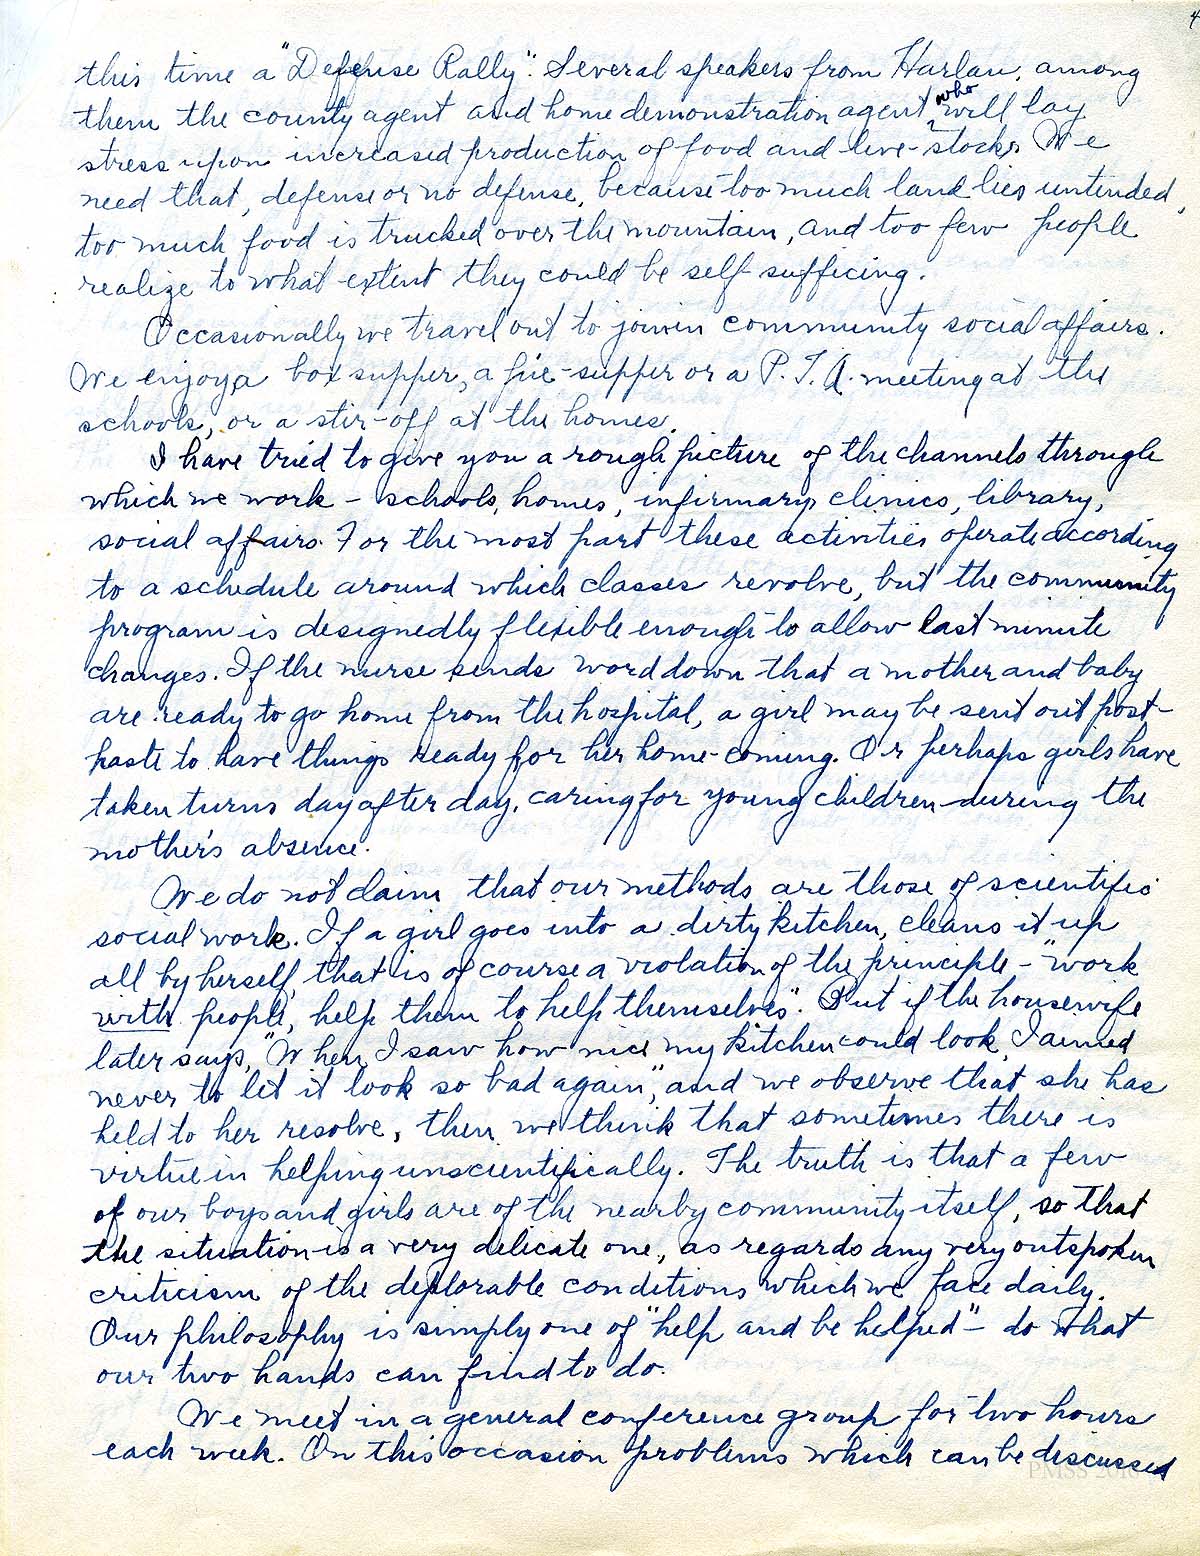 4
this time a "Defense Rally". Several speakers from Harlan, among
them the county agent and home demonstration agent, who will lay
stress upon increased production of food and live-stock. We
need that, defense or no defense, because too much land lies untended,
too much food is trucked over the mountain, and too few people
realize to what extent they could be self-sufficing.
Occasionally we travel out to join in community social affairs.
We enjoy a box supper, a pie-supper or a P.T.A. meeting at the
schools, or a stir-off at the homes.
I have tried to give you a rough picture of the channels through
which we work - schools, homes, infirmary, clinics, library,
social affairs. For the most part these activities operate according
to a schedule around which classes revolve, but the community
program is designedly flexible enough to allow last minute
changes. If the nurse sends word down that a mother and baby
are ready to go home from the hospital, a girl may be sent out post-
haste to have things ready for her home-coming. Or perhaps girls have
taken turns day after day, caring for young children during the
mother's absence.
We do not claim that our methods are those of scientific
social work. If a girl goes into a dirty kitchen, cleans it up
all by herself, that is of course a violation of the principle - "work
with people, help them to help themselves". But if the housewife
later says, "When I saw how nice my kitchen could look, I aimed
never to let it look so bad again", and we observe that she has
held to her resolve, then we think that sometimes there is
virtue in helping unscientifically. The truth is that a few
of our boys and girls are of the nearby community itself, so that
the situation is a very delicate one, as regards any very outspoken
criticism of the deplorable conditions which we face daily.
Our philosophy is simply one of "help and be helped" - do what
our two hands can find to do.
We meet in a general conference group for two hours
each week. On this occasion problems which can be discussed
PMSS 2016